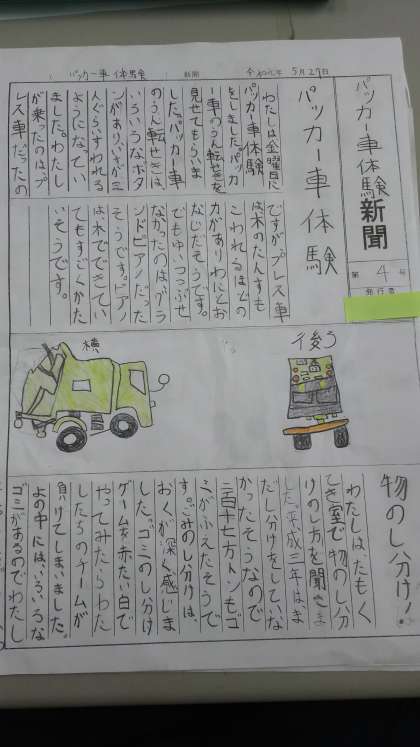 パッカー車体験 新聞 令和元年 5月27日
パッカー車体験新聞
第4号
発行者
パッカー車体験
わたしは金曜日に
パッカー車体験
をしました。パッカ
ー車のうん転せきを
見せてもらいま
した。パッカー車
のうん転せきは、
いろいろなボタ
ンがあり、いすが三
人ぐらいすわれる
ようになってい
ました。わたし
が乗ったのは、プ
レス車だったの
ですがプレス車
は木のたんすも
こわれるほどの
力がありわにとお
なじだそうです。
でもゆいつつぶせ
なかったのは、グラ
ンドピアノだった
そうです。ピアノ
は木でできてい
てもすごくかた
いそうです。
後ろ
横
物のし分け!
わたしは、たもく
てき室で物のし分
けのし方を聞きま
した。平成三年は、ま
だし分けをしていな
かったそうなので
二百十七万トンもゴ
ミがふえたそうで
す。ごみのし分けは、
おくが深く感じま
した。ゴミのし分け
ゲームを赤たい白で
やってみたらわた
したちのチームが
負けてしまいました。
よの中には、いろいろな
ゴミがあるのでわたし